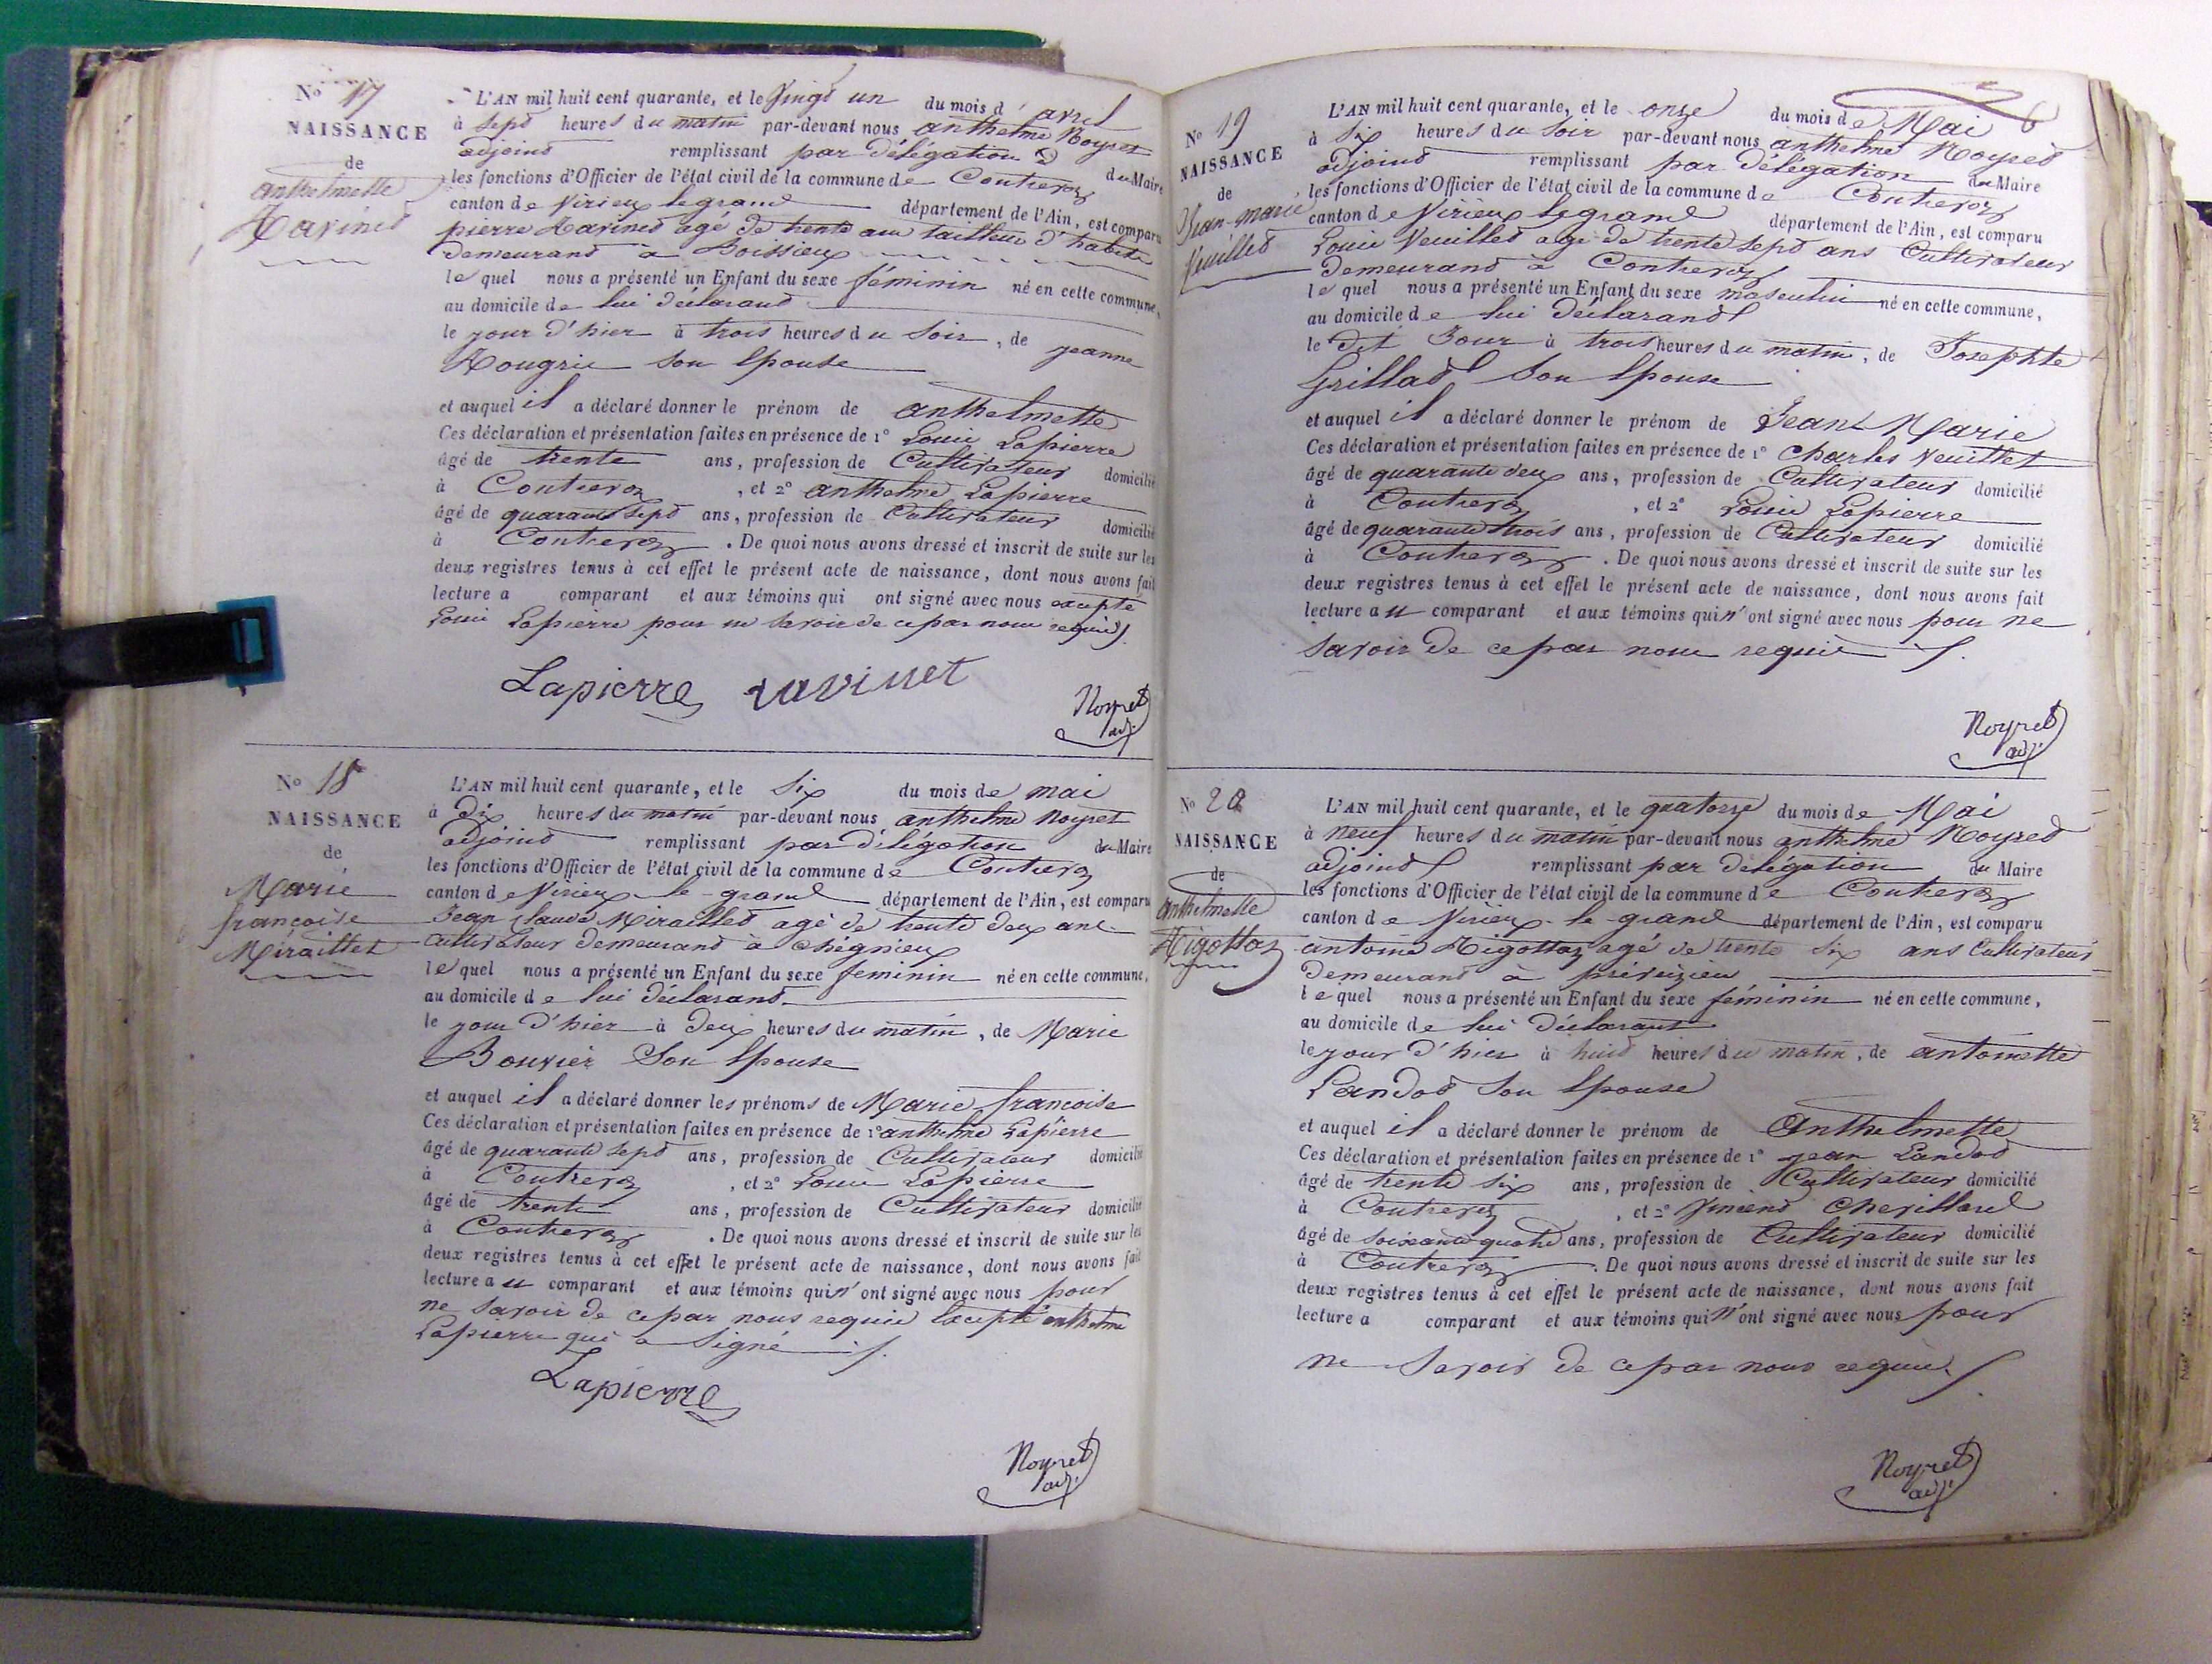 No 17
NAISSANCE
de
anthelmette
Ravinet
L'AN mil huit cent quarante, et le vingt un du mois d'avril
à sept heures du matin par-devant nous anthelme Noyret
adjoint remplissant par délégation du Maire
les fonctions d'Officier de l'état civil de la commune de Contrevoz
canton de Virieux legrand département de l'Ain, est comparu
pierre Ravinet agé de trente ans tailleur d'habits
demeurant à Boissieux
lequel nous a présenté un Enfant du sexe féminin né en cette commune,
au domicile de lui déclarant
le jour d'hier à trois heures du soir, de jeanne
son épouse
et auquel il a déclaré donner le prénom de anthelmette
Ces déclaration et présentation faites en présence de 1° Louis Lapierre
âgé de trente ans, profession de Cultivateur domicilié
à Contrevoz, et 2° anthelme Lapierre
âgé de quarante sept ans, profession de Cultivateur domicilié
à Contrevoz. De quoi nous avons dressé et inscrit de suite sur les
deux registres tenus à cet effet le présent acte de naissance, dont nous avons fait
lecture a comparant et aux témoins qui ont signé avec nous excepté
Louis Lapierre pour ne savoir de ce par nous requis
Lapierre ravinet
Noyret
adj.
No 18
NAISSANCE
de
Marie
françoise
Miraillet
L'AN mil huit cent quarante, et le six du mois de mai
à dix heures du matin par-devant nous anthelme Noyret
adjoint remplissant par délégation du Maire
les fonctions d'Officier de l'état civil de la commune de Contrevoz
canton de Virieux le grand département de l'Ain, est comparu
Jean Claude Miraillet agé de trente deux ans
Cultivateur demeurant à Chégnieux
lequel nous a présenté un Enfant du sexe feminin né en cette commune,
au domicile de lui déclarant
le jour d'hier à deux heures du matin, de Marie
Bouvier son épouse
et auquel il a déclaré donner les prénoms de Marie françoise
Ces déclaration et présentation faites en présence de 1° anthelme Lapierre
âgé de quarante sept ans, profession de Cultivateur domicilié
à Contrevoz, et 2° Louis Lapierre
âgé de trente ans, profession de Cultivateur domicilié
à Contrevoz. De quoi nous avons dressé et inscrit de suite sur les
deux registres tenus à cet effet le présent acte de naissance, dont nous avons fait
lecture au comparant et aux témoins qui n'ont signé avec nous pour
ne savoir de ce par nous requis excepté anthelme
Lapierre qui a signé
Lapierre
Noyret
adj.
No 19
NAISSANCE
de
Jean-marie
Veuillet
L'AN mil huit cent quarante, et le onze du mois de Mai
à six heures du soir par-devant nous anthelme Noyret
adjoint remplissant par délégation du Maire
les fonctions d'Officier de l'état civil de la commune de Contrevoz
canton de Virieux legrand département de l'Ain, est comparu
Louis Veuillet agé de trente sept ans Cultivateur
demeurant à Contrevoz
lequel nous a présenté un Enfant du sexe masculin né en cette commune,
au domicile de lui déclarant
le dit Jour à trois heures du matin, de Josephte
Grillat son épouse
et auquel il a déclaré donner le prénom de Jean Marie
Ces déclaration et présentation faites en présence de 1° Charles Veuillet
âgé de quarante deux ans, profession de Cultivateur domicilié
à Contrevoz, et 2° Louis Lapierre
âgé de quarante trois ans, profession de Cultivateur domicilié
à Contrevoz. De quoi nous avons dressé et inscrit de suite sur les
deux registres tenus à cet effet le présent acte de naissance, dont nous avons fait
lecture au comparant et aux témoins qui n'ont signé avec nous pour ne
savoir de ce par nous requis
Noyret
adj.
No 20
NAISSANCE
de
Anthelmette
Rigottaz
L'AN mil huit cent quarante, et le quatorze du mois de Mai
à neuf heures du matin par-devant nous anthelme Noyret
adjoint remplissant par délégation du Maire
les fonctions d'Officier de l'état civil de la commune de Contrevoz
canton de Virieux le grand département de l'Ain, est comparu
antoine Rigottaz agé de trente six ans Cultivateur
demeurant à preveizieu
lequel nous a présenté un Enfant du sexe féminin né en cette commune,
au domicile de lui déclarant
le jour d'hier à huit heures du matin, de antoinette
Landot son épouse
et auquel il a déclaré donner le prénom de Anthelmette
Ces déclaration et présentation faites en présence de 1° jean Landot
âgé de trente six ans, profession de Cultivateur domicilié
à Contrevoz, et 2° Vincent Chevillard
âgé de soixante quatre ans, profession de Cultivateur domicilié
à Contrevoz. De quoi nous avons dressé et inscrit de suite sur les
deux registres tenus à cet effet le présent acte de naissance, dont nous avons fait
lecture a comparant et aux témoins qui n'ont signé avec nous pour
ne savoir de ce par nous requis
Noyret
adj.